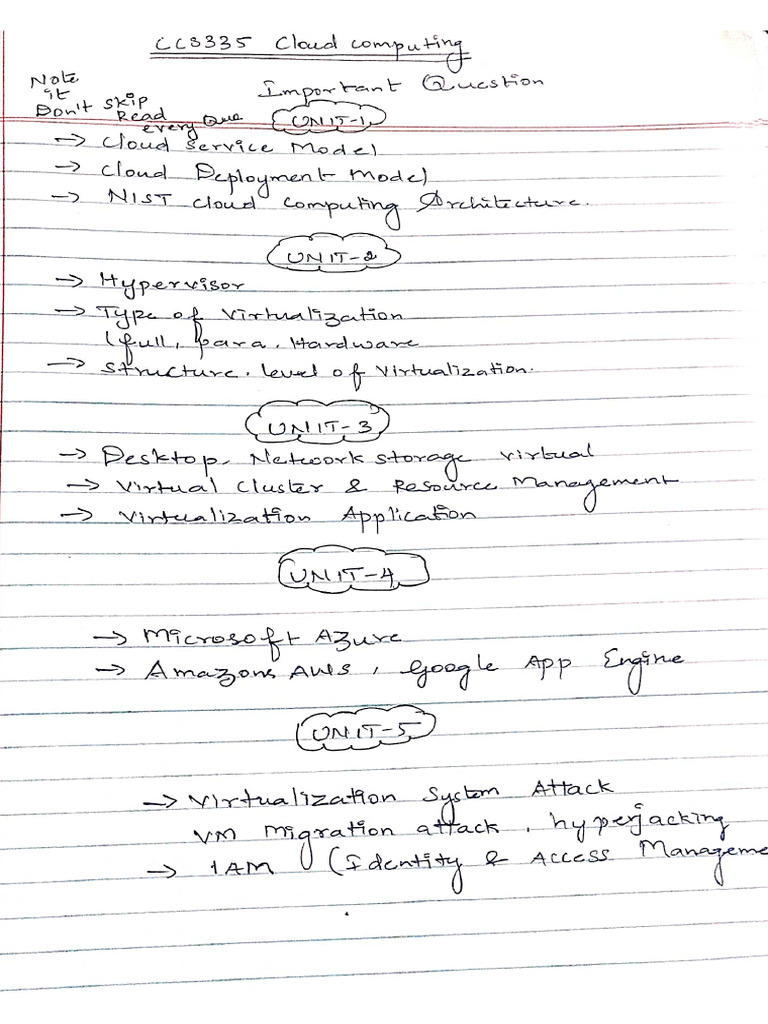 CCS335 Cloud computing
Note
it
Don't skip
Read
every Que
Important Question
UNIT-1
→ Cloud Service Model
→ Cloud Deployment Model
→ NIST cloud computing Architecture.
UNIT-2
→ Hypervisor
→ Type of Virtualization
(full, para, Hardware
→ Structure, level of Virtualization.
UNIT-3
→ Desktop, Network storage virtual
→ Virtual Cluster & Resource Management
→ Virtualization Application
UNIT-4
→ Microsoft Azure
→ Amazons AWS, Google App Engine
UNIT-5
→ Virtualization System Attack
VM Migration attack, hyperjacking
→ IAM (Identity & Access Manageme